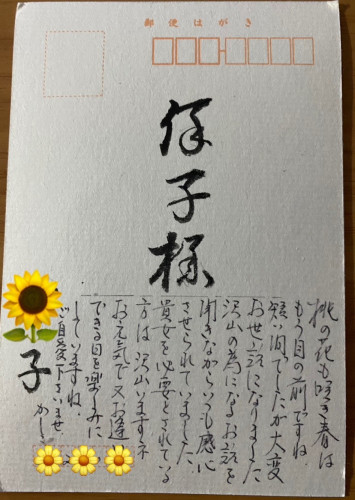 郵便はがき
保子様
桃の花も咲き春は
もう目の前ですね
短い間でしたが大変
お世話になりました
沢山の為になるお話を
聞きながらいつも感心
させられていました、
貴女を必要とされている
方は沢山いますネ
お元気で又お逢
できる日を楽しみに
していますね、
ご自愛下さいませ
かしこ
子